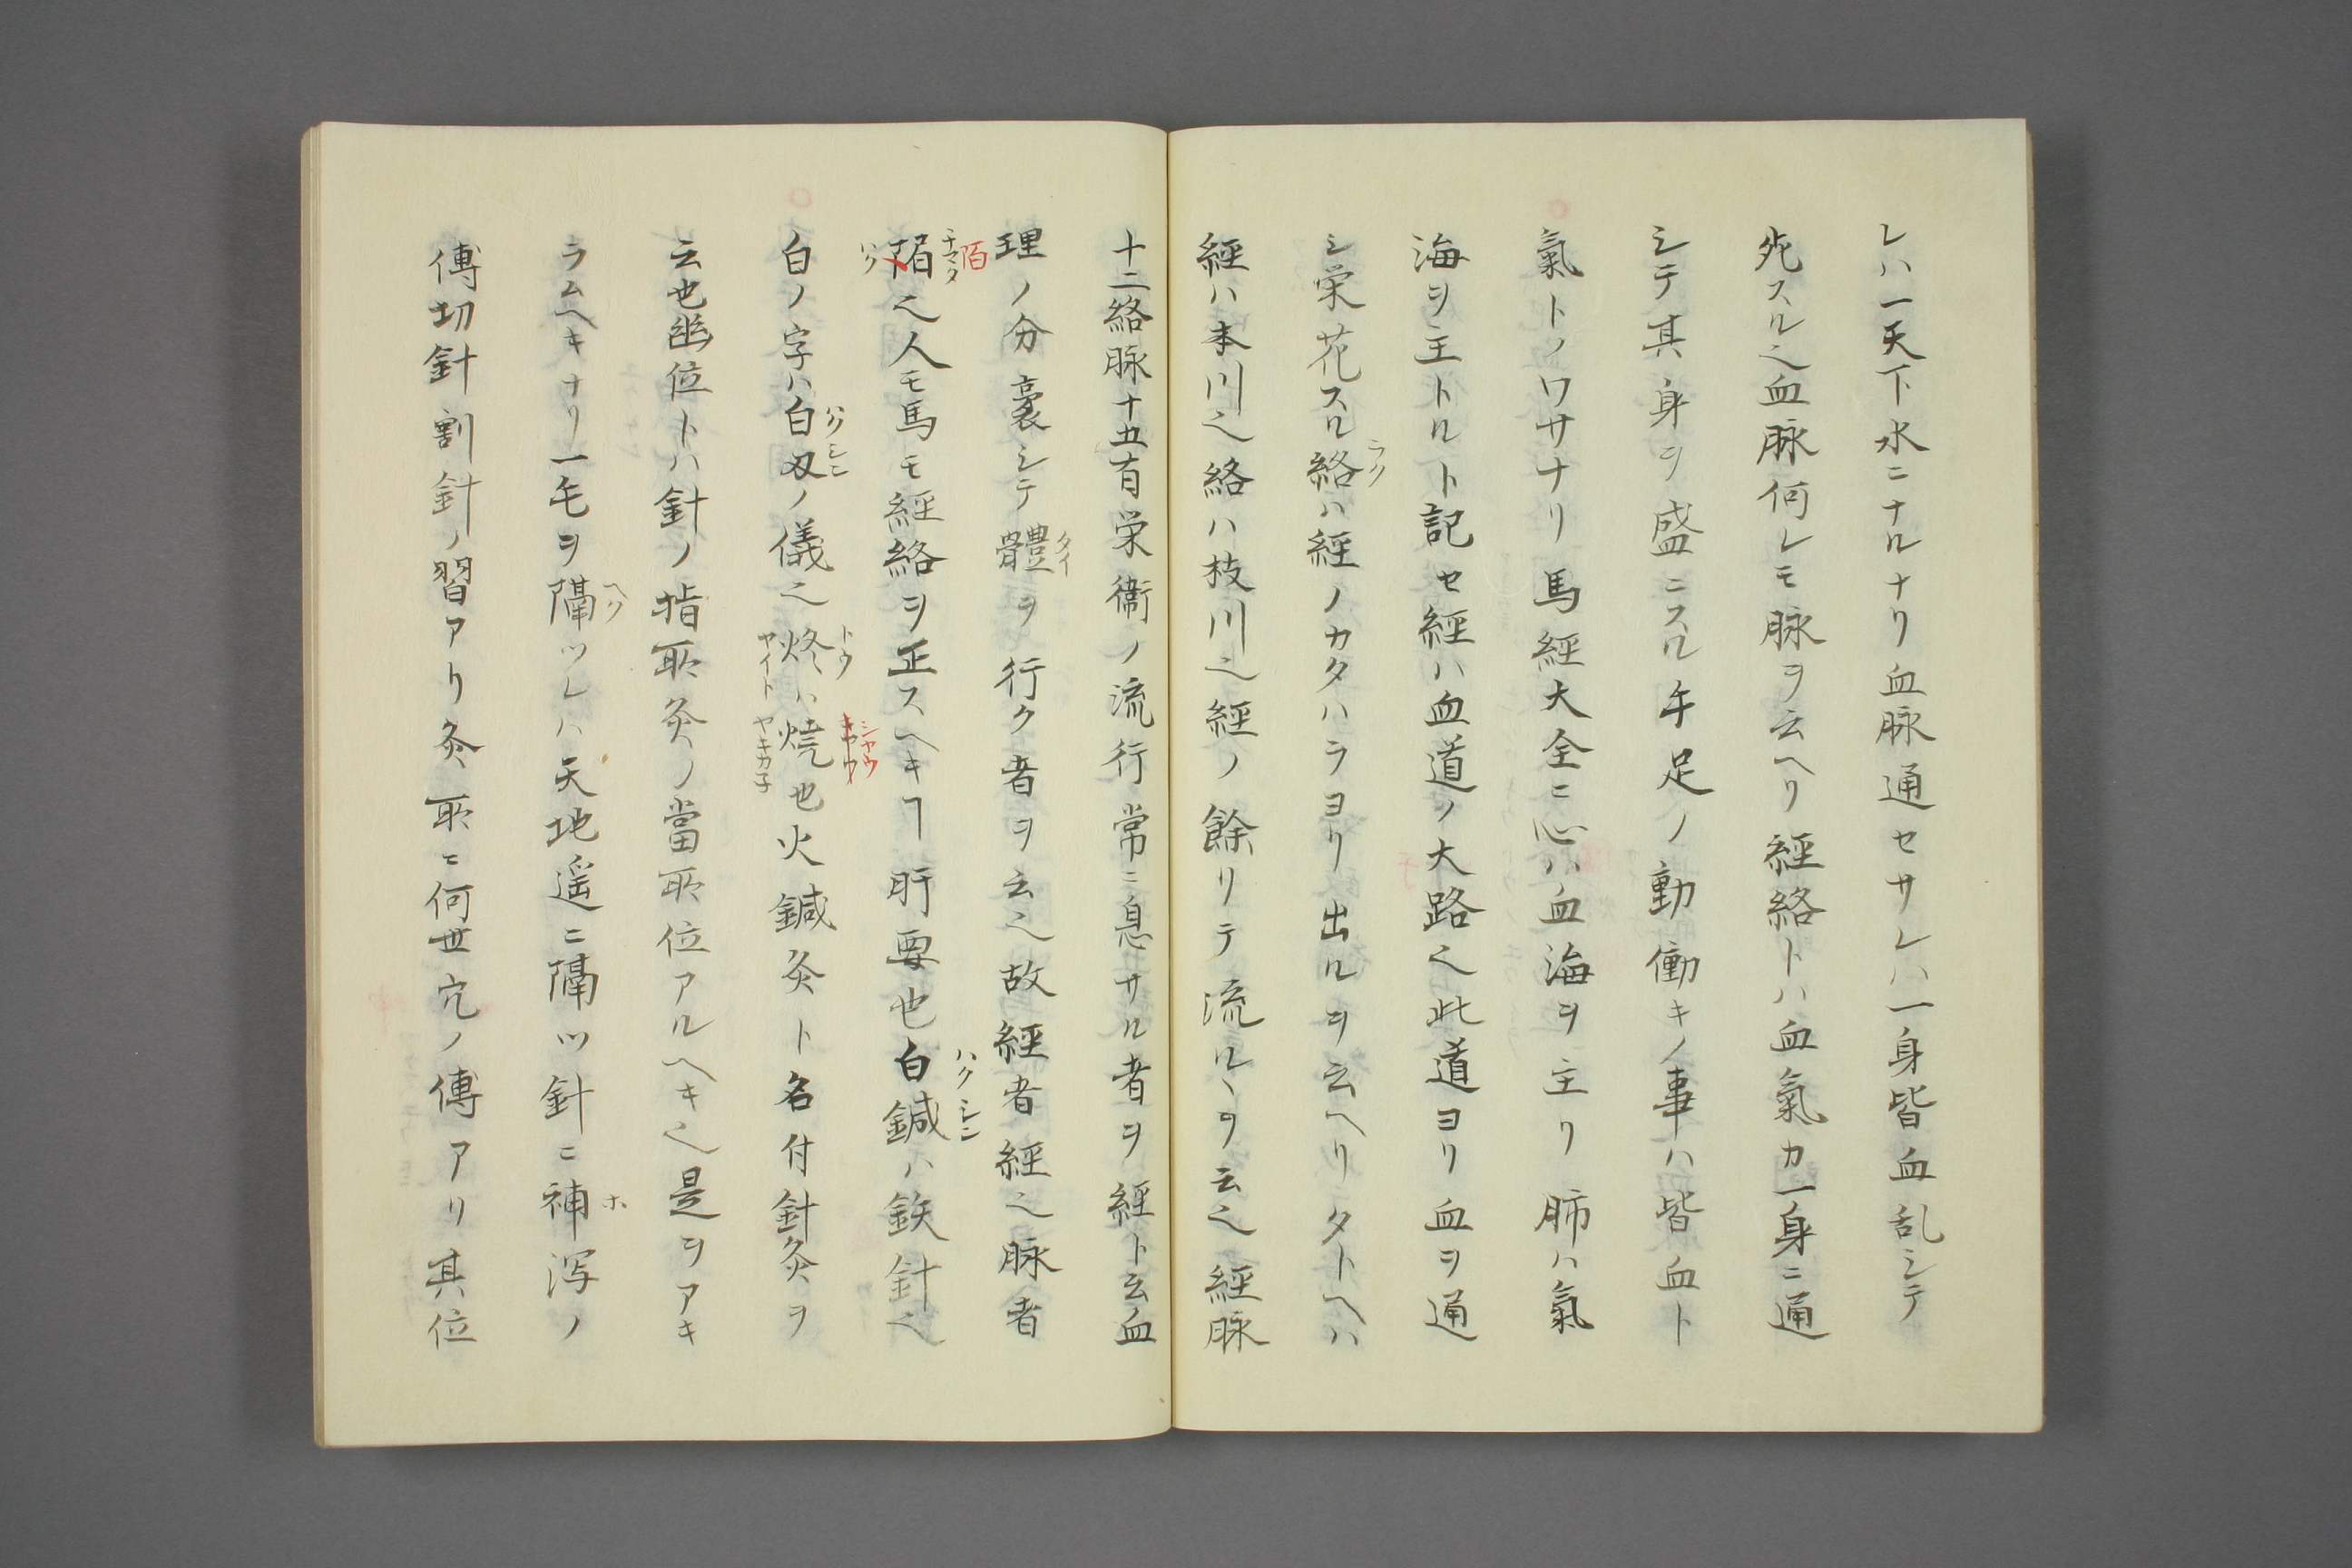 レハ一天下水ニナルナリ血脉通セサレハ一身皆血乱シテ
死スル也血脉何レモ脉ヲ云ヘリ經絡トハ血氣カ一身ニ通
シテ其身ヲ盛ニスル午足ノ動働キノ事ハ皆血ト
氣トノワサナリ馬經大全ニ心ハ血海ヲ主リ肺ハ氣
海ヲ主トルト記セ經ハ血道ノ大路也此道ヨリ血ヲ通
シ栄花スル絡ハ經ノカタハラヨリ出ルヲ云ヘリタトヘハ
ラク
經ハ本川也絡ハ枝川也經ノ餘リテ流ルヽヲ云也經脉
十二絡脉十五有栄衞ノ流行常ニ息サル者ヲ經ト云血
理ノ分裹シテ體ヲ行ク者ヲ云也故經者經也脉者
タイ
陌
チマタ
ハク
也人モ馬モ經絡ヲ正スヘキヿ肝要也白鍼ハ鉄針也
ハクシン
白ノ字ハ白刄ノ儀也炵ハ焼也火鍼灸ト名付針灸ヲ
ハクシン
トウ
ヤイト
シヤウ
キヤウ
ヤキカ子
云也幽位トハ針ノ指所灸ノ當所位アルヘキ也是ヲアキ
ラムヘキナリ一毛ヲ隔ツレハ天地遥ニ隔ツ針ニ補泻ノ
ヘク
ホ
傳切針割針ノ習アリ灸所ニ何世穴ノ傳アリ其位